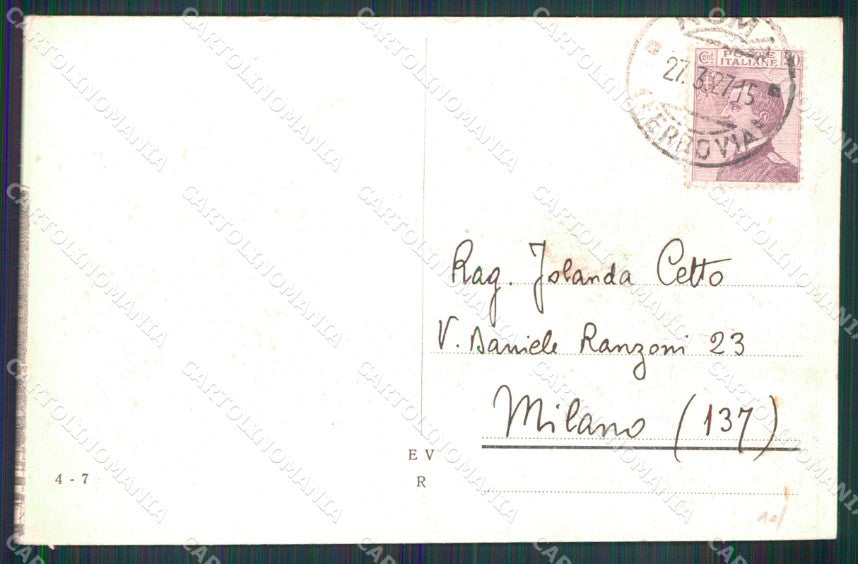 ROMA
27.3.27.15
FERROVIA
POSTE
ITALIANE
Rag. Jolanda Cetto
V. Daniele Ranzoni 23
Milano (137)
E V
R
4 - 7
CARTOLINOMANIA